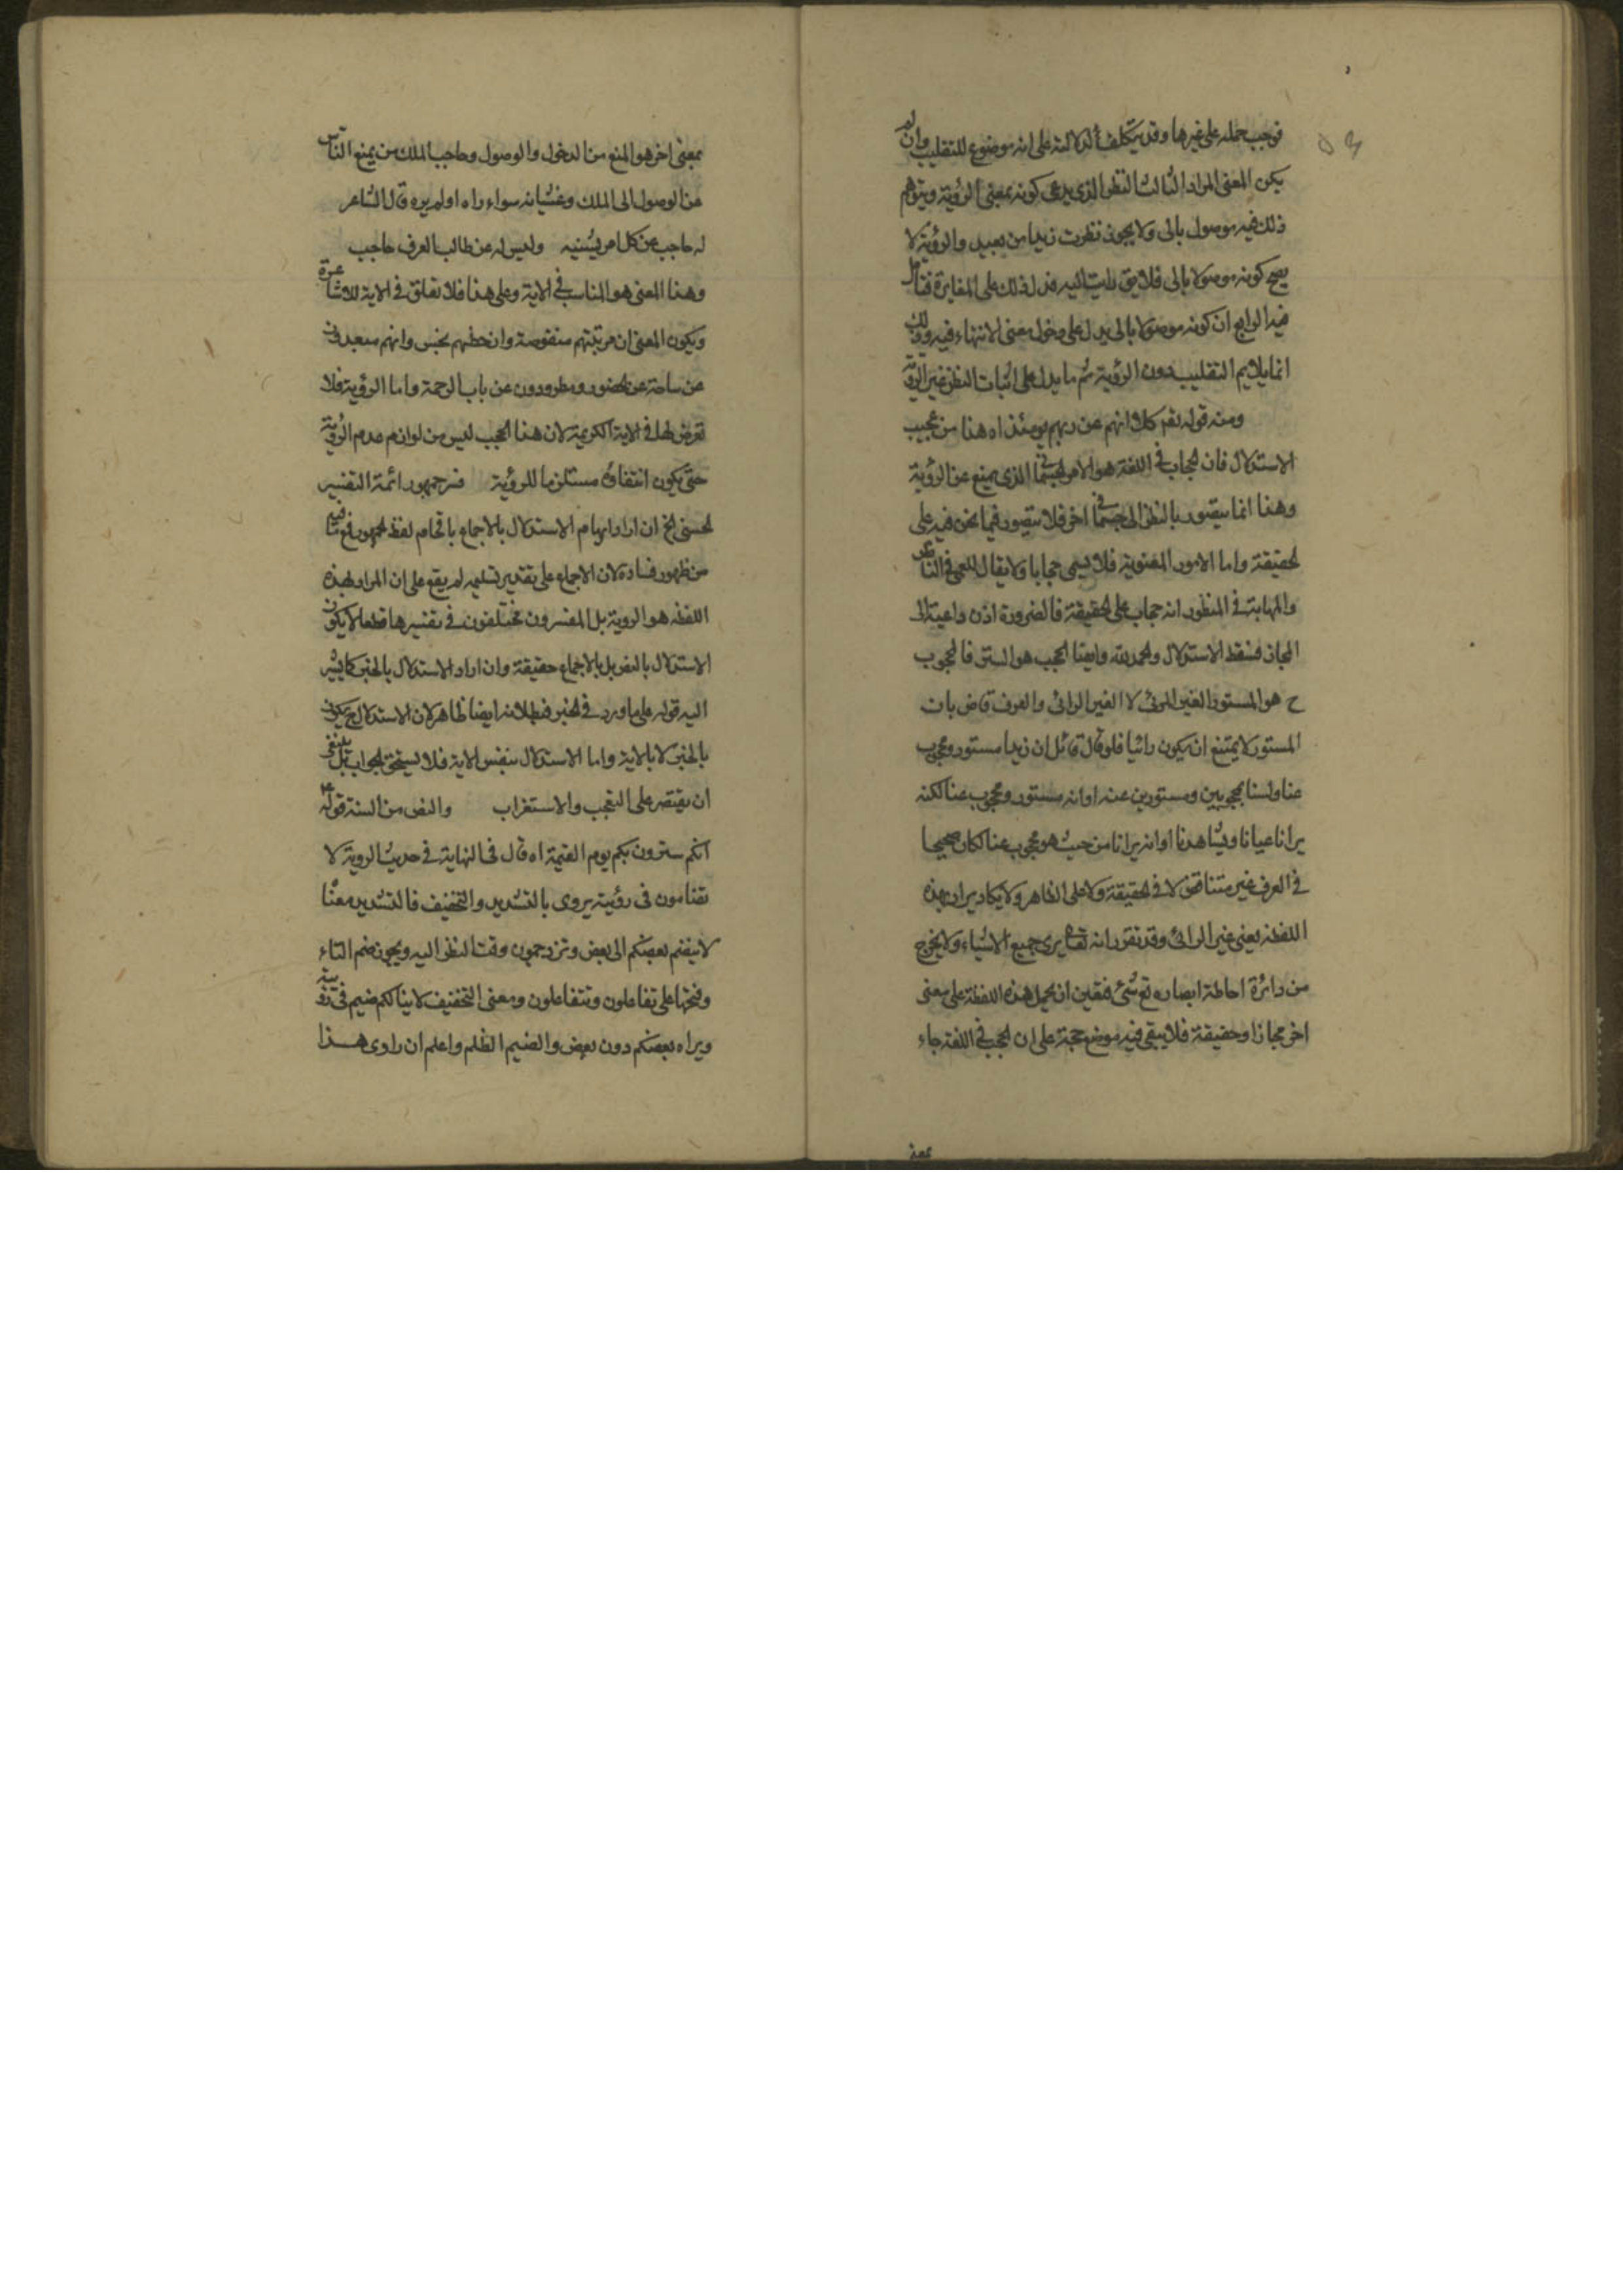 فوجب حمله على غيرها وقد يتكلف الدلالة على انه موضوع للتقليب وان لم
يكن المعنى المراد الثالث النظر الذي يدعى كونه بمعنى الرؤية ويتوهم
ذلك فيه موصول بالى ولا يجوز نظرت زيدا من بعيد والرؤية لا
يصح كونه موصولا بالى فلا يق رايت اليه فدل ذلك على المغايرة فتامل
فيه الرابع ان كونه موصولا بالى يدل على دخول معنى الانتهاء فيه وذلك
انما يلايم التقليب دون الرؤية ثم ما يدل على اثبات النظر غير الرؤية
ومنه قوله تعم كلا انهم عن ربهم يومئذ اه هذا من عجيب
الاستدلال فان الحجاب في اللغة هو الامر الجسماني الذي يمنع عن الرؤية
وهذا انما يتصور بالنظر الى جسماني اخر فلا يتصور فيما نحن فيه على
الحقيقة واما الامور المعنوية فلا يسمى حجابا ولا يقال للعمى في الناظر
والمهابة في المنظور انه حجاب على الحقيقة فالضرورة اذن داعية الى
المجاز فسقط الاستدلال والحمد لله وايضا الحجب هو الستر فالمحجوب
ح هو المستور الغير المرئى لا الغير الرائى والعرف قاض بان
المستور لا يمتنع ان يكون رائيا فلو قال قائل ان زيدا مستور ومحجوب
عنا ولسنا بمحجوبين ومستورين عنه او انه مستور ومحجوب عنا لكنه
يرانا عيانا ويشاهدنا او انه يرانا من حيث هو محجوب عنا لكان صحيحا
في العرف غير متناقض لا في الحقيقة ولا على الظاهر ولا يكاد يراد بهذه
اللفظة يعنى غير الرائى وقد تقرر انه تعالى يرى جميع الاشياء ولا يخرج
من دائرة احاطة ابصاره تع شئ فتعين ان يحمل هذه اللفظة على معنى
اخر مجازا وحقيقة فلا يبقى فيه موضع حجة على ان الحجب في اللغة جاء
بمعنى
بمعنى اخر هو المنع من الدخول والوصول وحاجب الملك من يمنع الناس
عن الوصول الى الملك وغشيانه سواء راه او لم يره قال الشاعر
له حاجب عن كل امر يشينه وليس له عن طالب العرف حاجب
وهذا المعنى هو المناسب في الاية وعلى هذا فلا تعلق في الاية للاشاعرة
ويكون المعنى ان مرتبتهم منقوصة وان حظهم بخس وانهم مبعدون
عن ساحة عز الحضور ومطرودون عن باب الرحمة واما الرؤية فلا
تعرض لها في الاية الكريمة لان هذا الحجب ليس من لوازم عدم الرؤية
حتى يكون انتفاؤه مستلزما للرؤية فسر جمهور ائمة التفسير
الحسنى الخ ان اراد ايهام الاستدلال بالاجماع باقحام لفظ الجمهور فمع ما فيه
من ظهور فساده لان الاجماع على تقدير تسليمه لم يقع على ان المراد بهذه
اللفظة هو الروية بل المفسرون مختلفون في تفسيرها قطعا لا يكون
الاستدلال بالنص بل بالاجماع حقيقة وان اراد الاستدلال بالخبر كما يشير
اليه قوله على ما ورد في الخبر فبطلانه ايضا ظاهر لان الاستدلال ح يكون
بالخبر لا بالاية واما الاستدلال بنفس الاية فلا يستحق الجواب بل ينبغى
ان يقتصر على التعجب والاستغراب والنص من السنة قوله ع
انكم سترون ربكم يوم القيمة اه قال في النهاية في حديث الروية لا
تضامون في رؤيته يروى بالتشديد والتخفيف فالتشديد معناه
لا ينضم بعضكم الى بعض وتزدحمون وقت النظر اليه ويجوز ضم التاء
وفتحها على تفاعلون وتتفاعلون ومعنى التخفيف لا ينالكم ضيم في رؤيته
ويراه بعضكم دون بعض والضيم الظلم واعلم ان راوى هذا